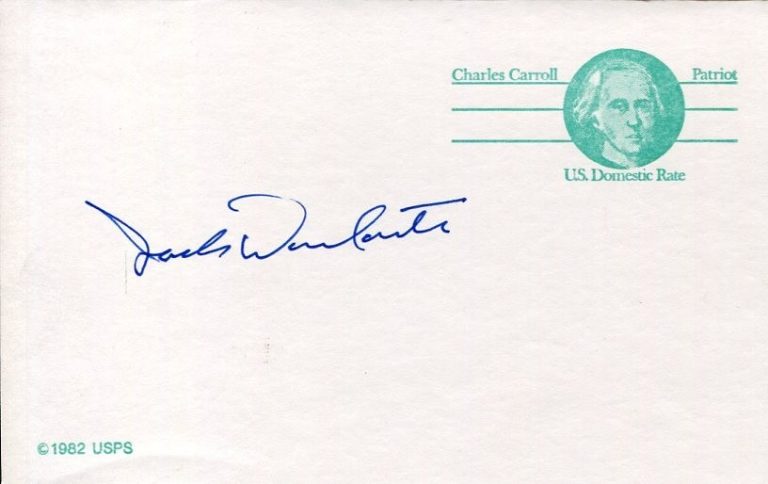 Charles Carroll Patriot
U.S. Domestic Rate
Jack
©1982 USPS